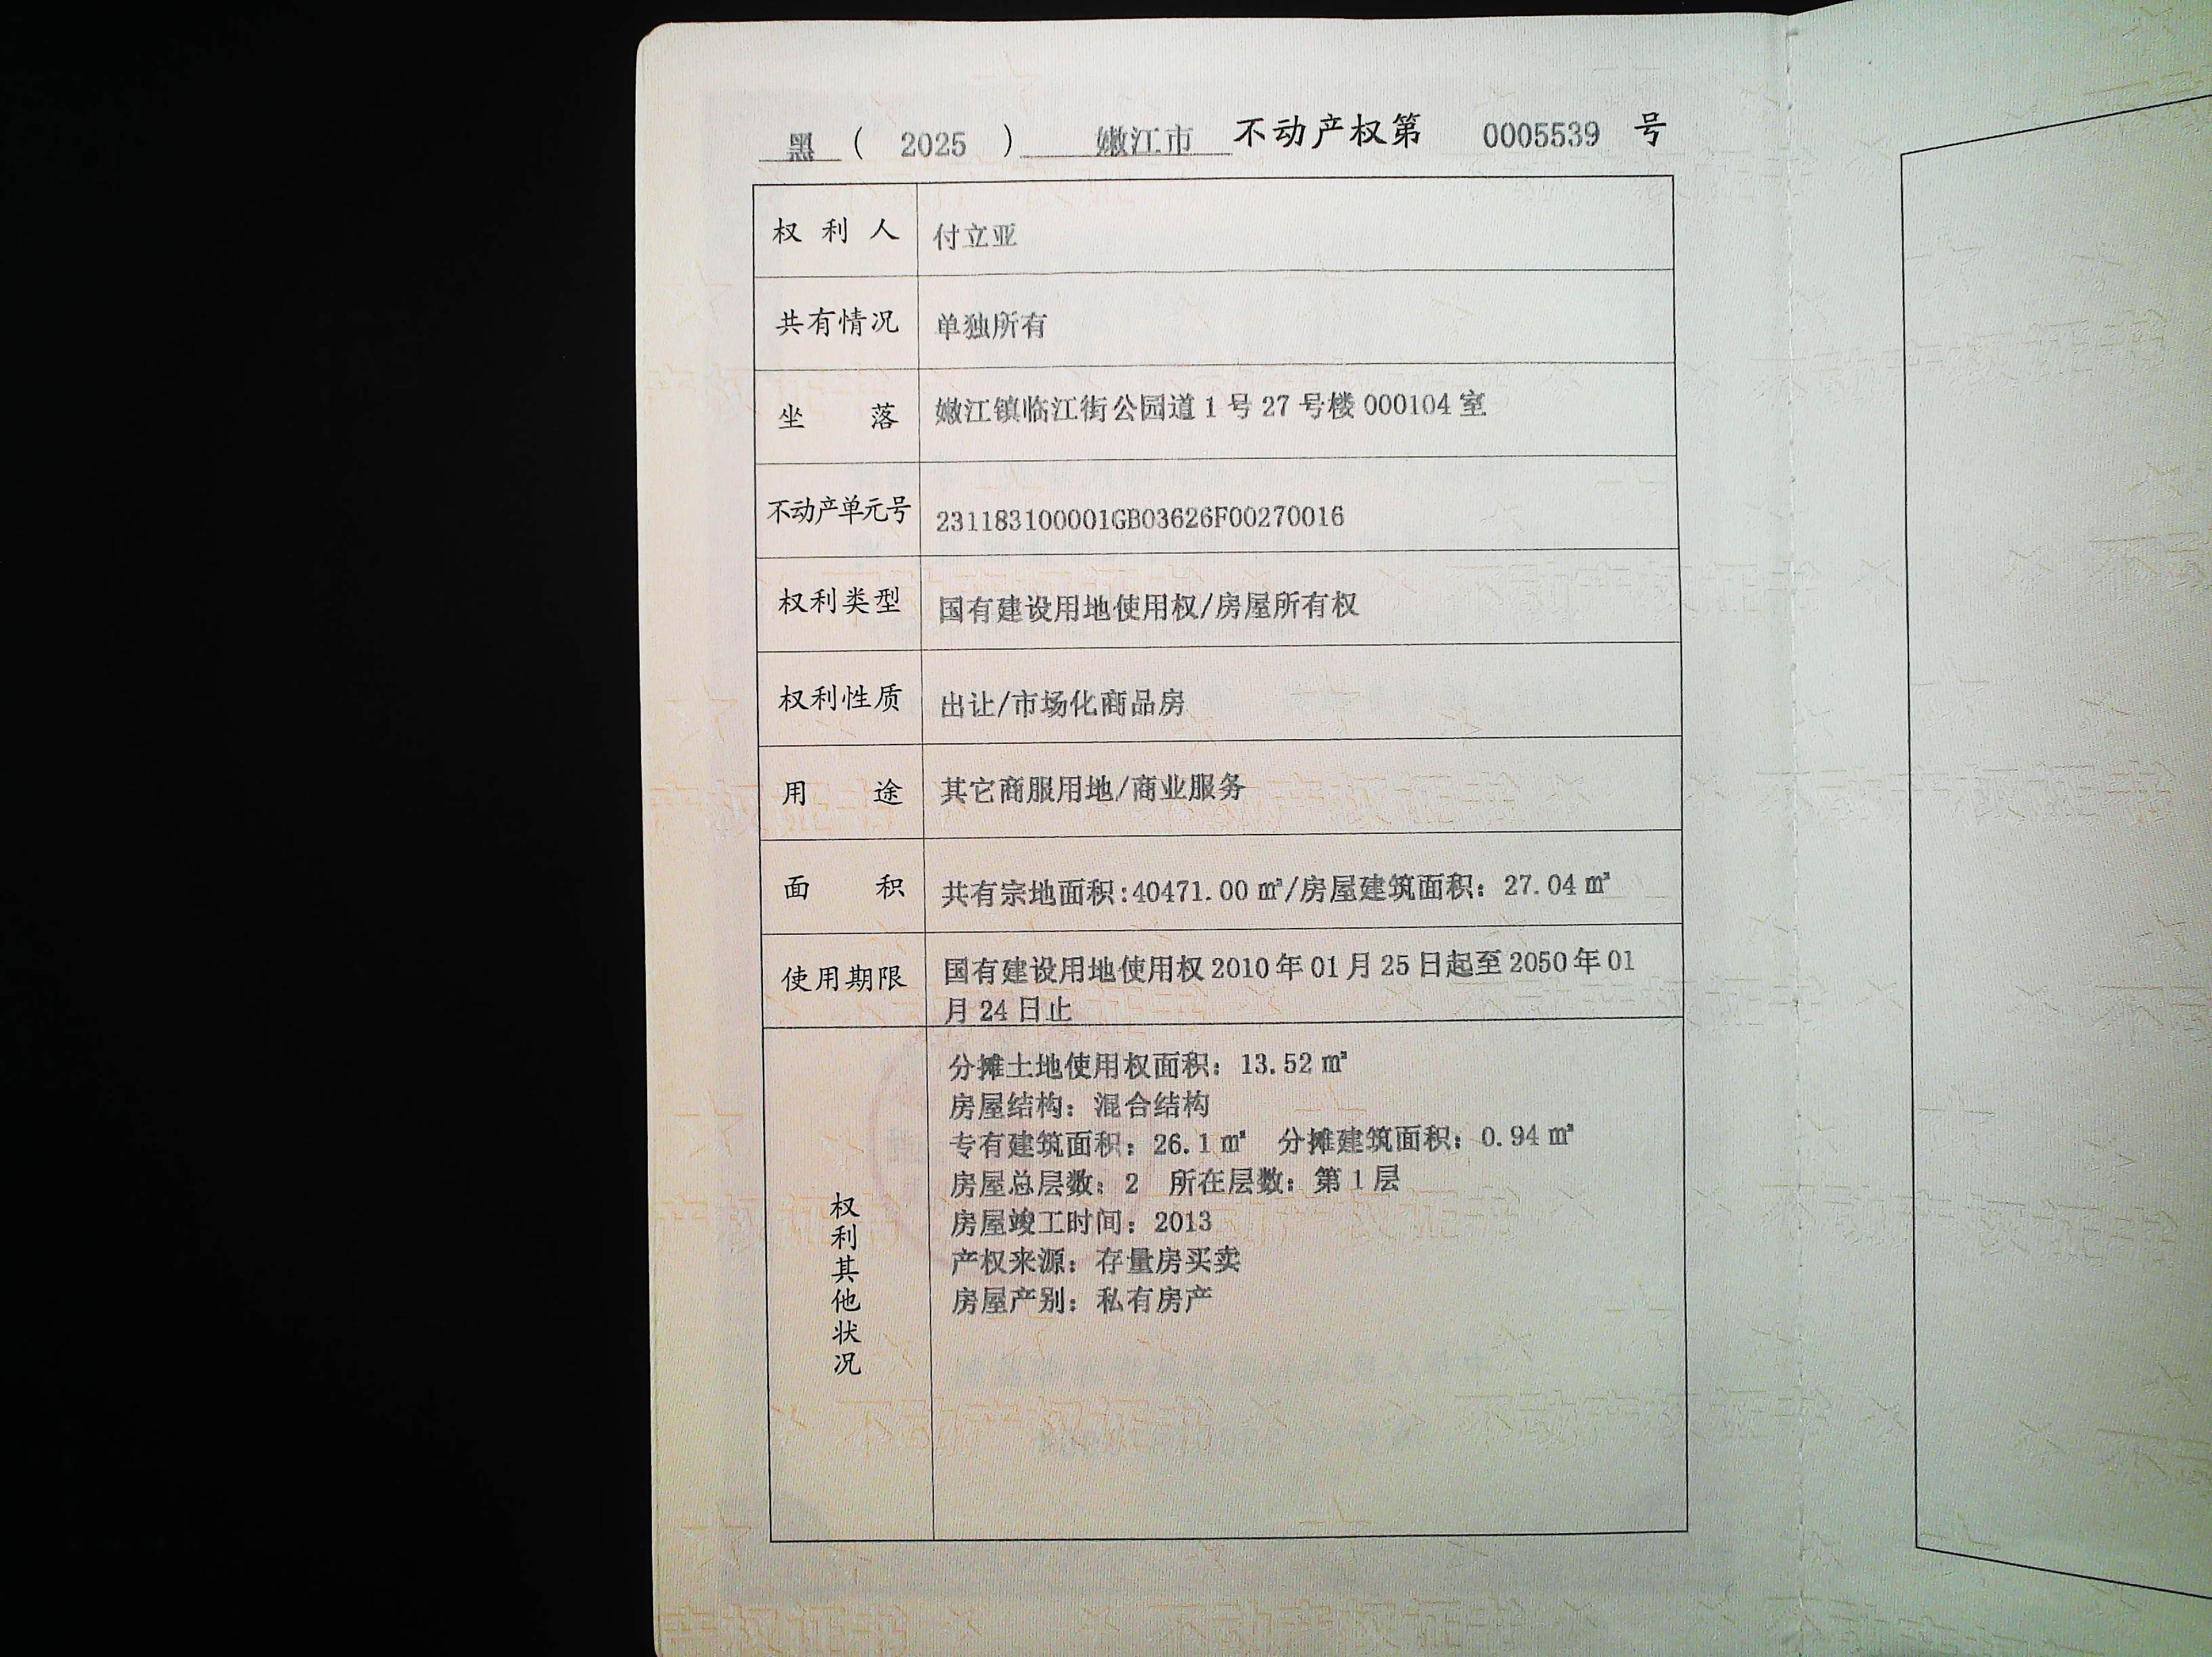 黑 ( 2025 ) 嫩江市 不动产权第 0005539 号
权利人 付立亚
共有情况 单独所有
坐落 嫩江镇临江街公园道1号27号楼000104室
不动产单元号 231183100001GB03626F00270016
权利类型 国有建设用地使用权/房屋所有权
权利性质 出让/市场化商品房
用途 其它商服用地/商业服务
面积 共有宗地面积:40471.00㎡/房屋建筑面积：27.04㎡
使用期限 国有建设用地使用权2010年01月25日起至2050年01
月24日止
权利其他状况
分摊土地使用权面积：13.52㎡
房屋结构：混合结构
专有建筑面积：26.1㎡ 分摊建筑面积：0.94㎡
房屋总层数：2 所在层数：第1层
房屋竣工时间：2013
产权来源：存量房买卖
房屋产别：私有房产